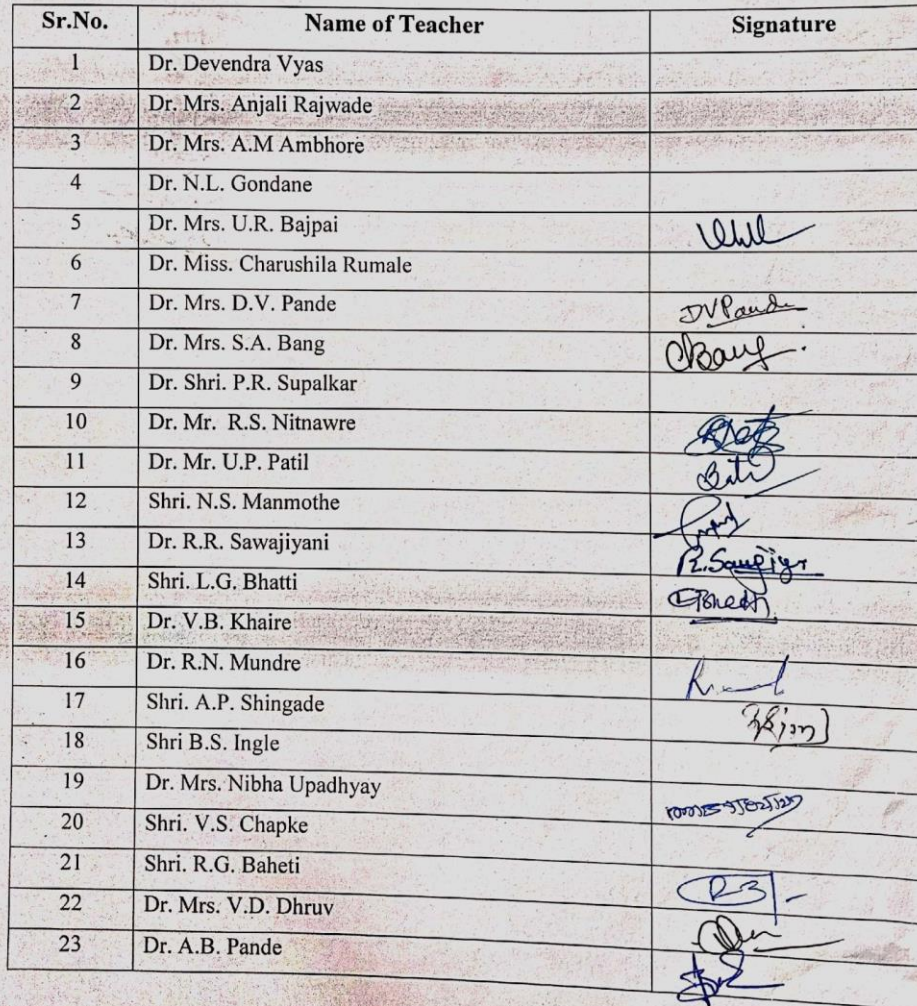 Sr.No. Name of Teacher Signature
1 Dr. Devendra Vyas
2 Dr. Mrs. Anjali Rajwade
3 Dr. Mrs. A.M Ambhore
4 Dr. N.L. Gondane
5 Dr. Mrs. U.R. Bajpai
6 Dr. Miss. Charushila Rumale
7 Dr. Mrs. D.V. Pande DVPande
8 Dr. Mrs. S.A. Bang Bang
9 Dr. Shri. P.R. Supalkar
10 Dr. Mr. R.S. Nitnawre
11 Dr. Mr. U.P. Patil
12 Shri. N.S. Manmothe
13 Dr. R.R. Sawajiyani
14 Shri. L.G. Bhatti
15 Dr. V.B. Khaire
16 Dr. R.N. Mundre
17 Shri. A.P. Shingade
18 Shri B.S. Ingle
19 Dr. Mrs. Nibha Upadhyay
20 Shri. V.S. Chapke
21 Shri. R.G. Baheti
22 Dr. Mrs. V.D. Dhruv
23 Dr. A.B. Pande